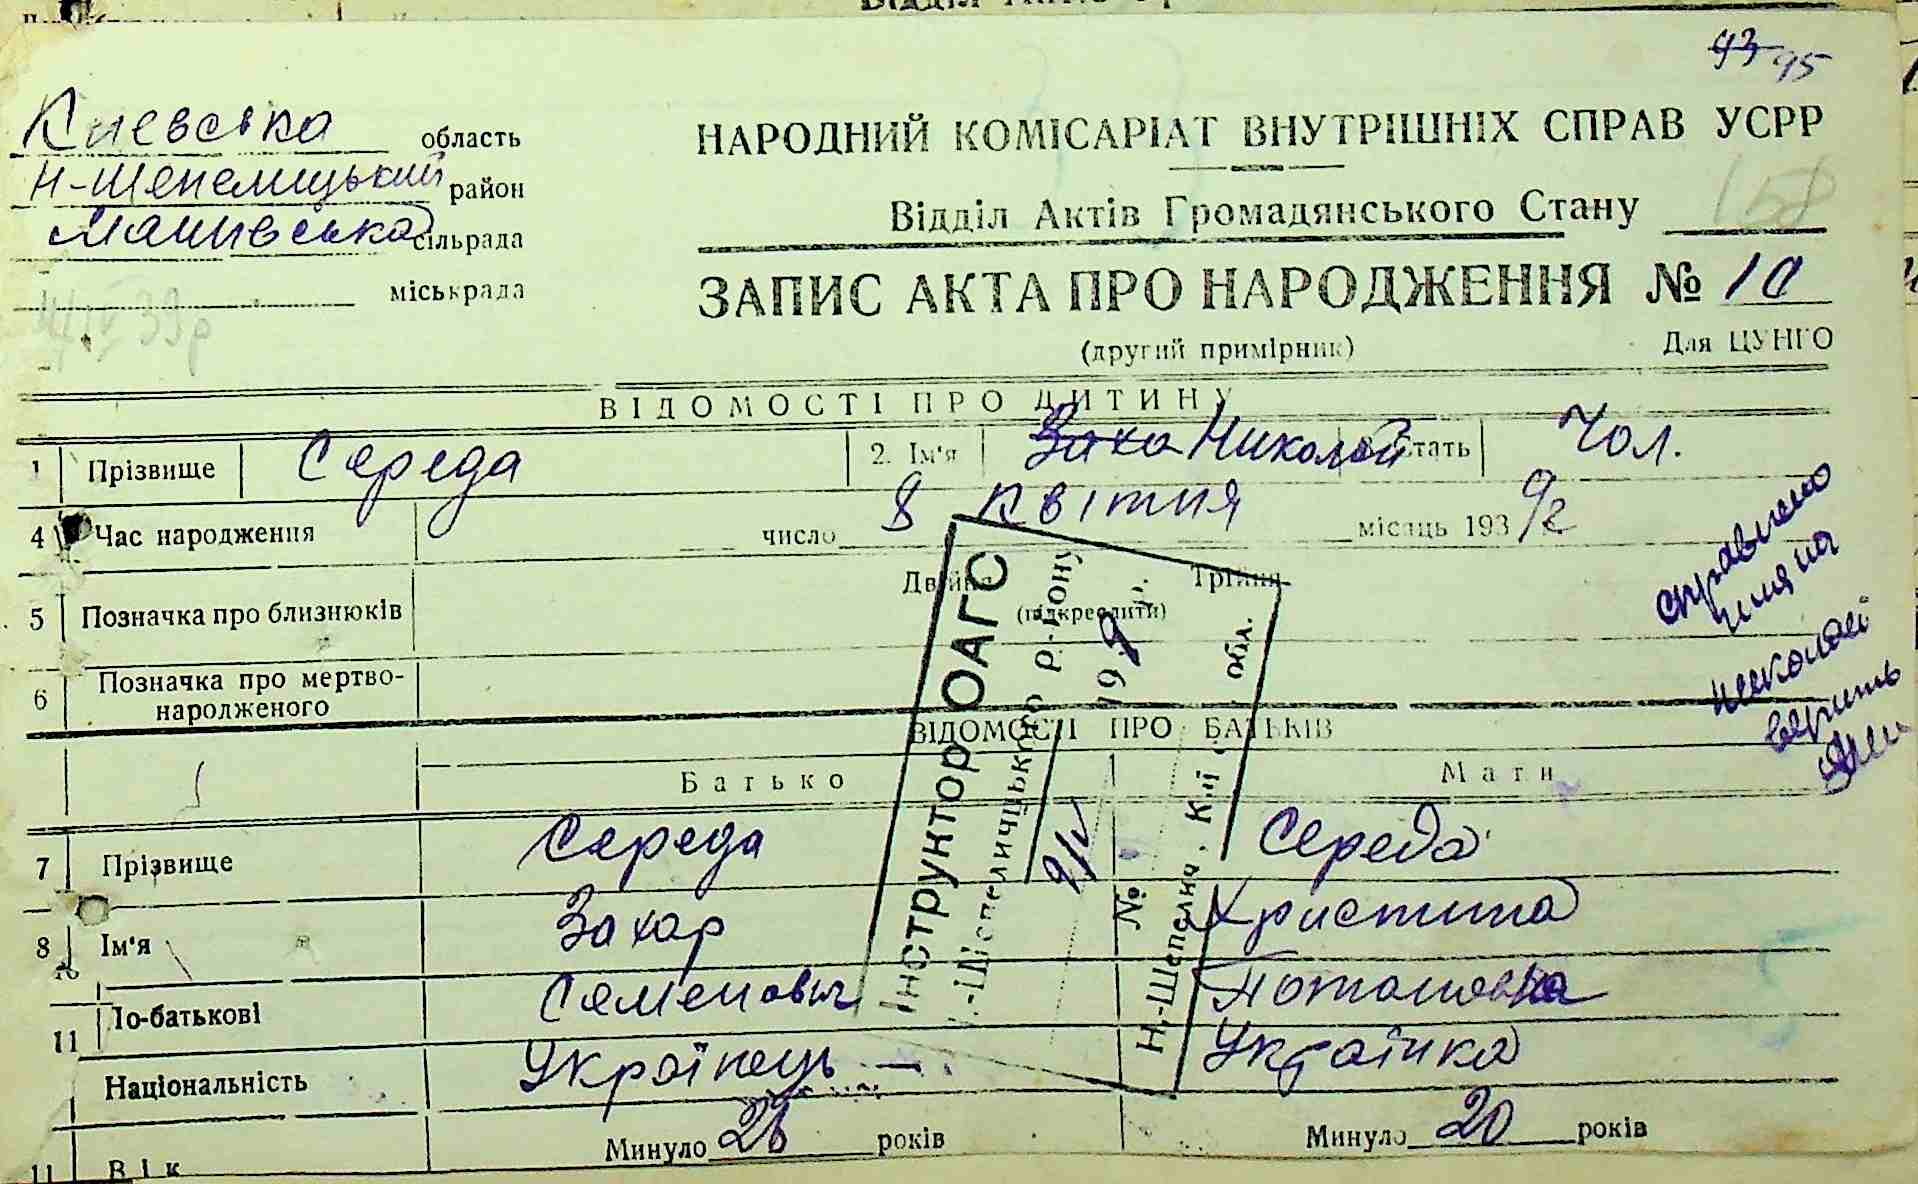 93 95
Киевська область
Н-Шепелицький район
Машивська сільрада
міськрада
НАРОДНИЙ КОМІСАРІАТ ВНУТРІШНІХ СПРАВ УСРР
158
Відділ Актів Громадянського Стану
ЗАПИС АКТА ПРО НАРОДЖЕННЯ № 10
(другий примірник) Для ЦУНГО
ВІДОМОСТІ ПРО ДИТИНУ
1 Прізвище Середа 2. Ім'я Заха Николай Стать Чол.
4 Час народження число 8 Квітня місяць 1939г
5 Позначка про близнюків Двійня Трійня
(підкреслити)
6 Позначка про мертво-
народженого
справлено
на
николай
верить
ВІДОМОСТІ ПРО БАТЬКІВ
Батько Мати
7 Прізвище Середа Середа
8 Ім'я Захар Христина
По-батькові Семенович Потаповна
11 Національність Українець Українка
11 Вік Минуло 26 років Минуло 20 років
Інструктор ОАГС
Н.-Шепелицького р-ону
№
Н.-Шепелич, Київ. обл.